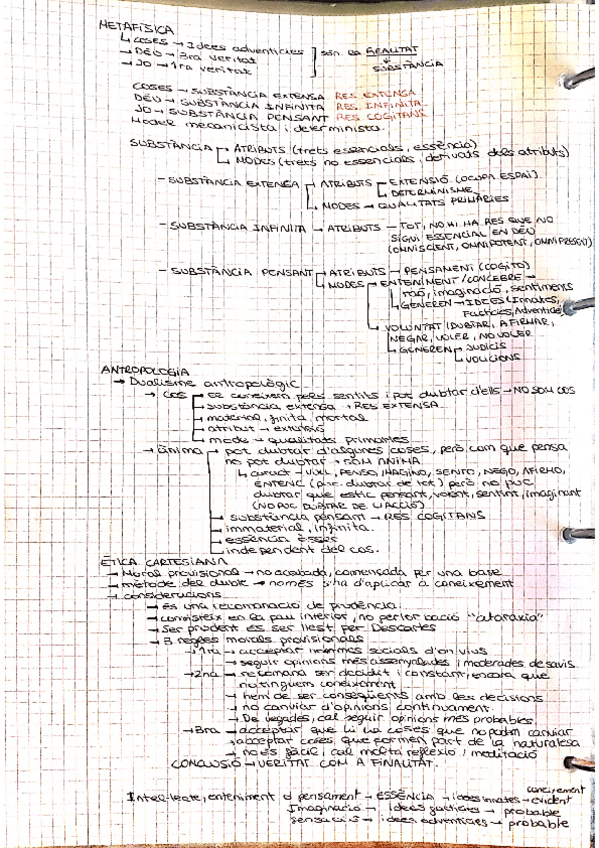 METAFÍSICA
↳ COSES → Idees adventícies
→ DÉU → 3ra veritat
→ JO → 1ra veritat
són la REALITAT
↓
SUBSTÀNCIA
COSES → SUBSTÀNCIA EXTENSA RES EXTENSA
DÉU → SUBSTÀNCIA INFINITA RES INFINITA
JO → SUBSTÀNCIA PENSANT RES COGITANS
Model mecanicista i determinista.
SUBSTÀNCIA → ATRIBUTS (trets essencials, essència)
↳ MODES (trets no essencials, derivats dels atributs)
- SUBSTÀNCIA EXTENSA → ATRIBUTS → EXTENSIÓ (OCUPA ESPAI)
↳ DETERMINISME
↳ MODES → QUALITATS PRIMÀRIES
- SUBSTÀNCIA INFINITA → ATRIBUTS → TOT, NO HI HA RES QUE NO
SIGUI ESSENCIAL EN DÉU
(OMNISCIENT, OMNIPOTENT, OMNIPRESENT)
- SUBSTÀNCIA PENSANT → ATRIBUTS → PENSAMENT (COGITO)
↳ MODES → ENTENIMENT / CONCEBRE →
raó, imaginació, sentiments
↳ GENEREN → IDEES (Innates,
Factícies, Adventícies)
↳ VOLUNTAT (DUBTAR, AFIRMAR,
NEGAR, VOLER, NO VOLER
↳ GENEREN → JUDICIS
↳ VOLICIONS
ANTROPOLOGIA
→ Dualisme antropològic
→ COS → es coneixem pels sentits i pot dubtar d'ells → NO SOM COS
→ substància extensa → RES EXTENSA
→ material, finita, mortal
→ atribut → extensió
→ mode → qualitats primàries
→ ànima → pot dubtar d'algunes coses, però com que pensa
no pot dubtar → SOM ÀNIMA
VIXL, PENSO, IMAGINO, SENTO, NEGO, AFIRMO,
ENTENC (puc dubtar de tot) però no puc
dubtar que estic pensant, volent, sentint, imaginant
(NO PUC DUBTAR DE L'ACCIÓ)
→ substància pensant → RES COGITANS
→ immaterial, infinita.
→ essència ésser
→ independent del cos.
ÈTICA CARTESIANA
→ Moral provisional → no acabada, començada per una base
→ mètode del dubte → només s'ha d'aplicar a coneixement
→ consideracions
→ és una recomanació de prudència
→ consisteix en la pau interior, no pertorbació "ataraxia"
→ Ser prudent és ser llest per Descartes
→ 3 regles morals provisionals
→ 1ra → acceptar normes socials d'on vius
→ seguir opinions més assenyalades i moderades de savis
→ 2na → recomana ser decidit i constant, encara que
no tinguem coneixement
→ hem de ser conseqüents amb les decisions
→ no canviar d'opinions contínuament.
→ De vegades, cal seguir opinions més probables
→ 3ra → acceptar que hi ha coses que no podem canviar
→ acceptar coses que formen part de la naturalesa
→ no és fàcil, cal molta reflexió i meditació
CONCLUSIÓ → VERITAT COM A FINALITAT.
coneixement
Intel·lecte, enteniment o pensament → ESSÈNCIA → idees innates → evident
Imaginació → idees factícies → probable
Sensació → idees adventícies → probable